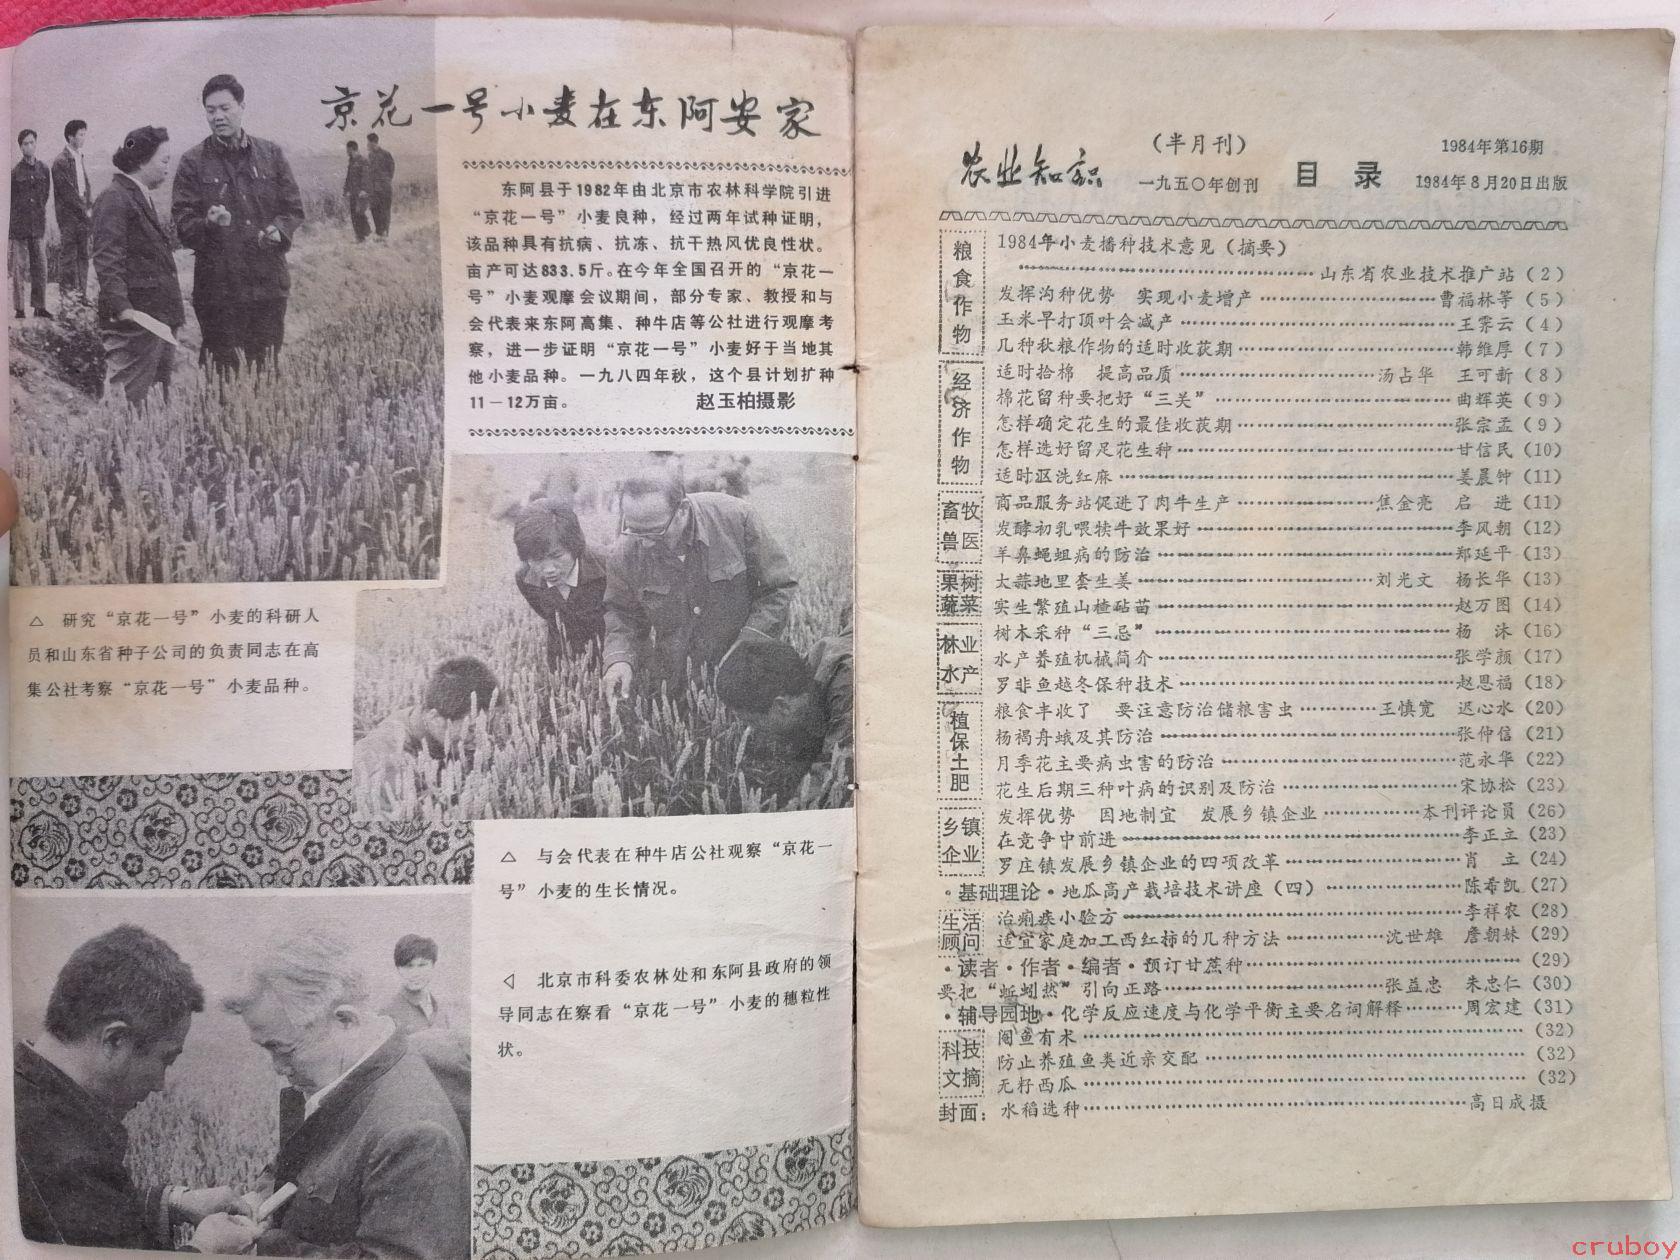 京花一号小麦在东阿安家
东阿县于1982年由北京市农林科学院引进
“京花一号”小麦良种，经过两年试种证明，
该品种具有抗病、抗冻、抗干热风优良性状。
亩产可达833.5斤。在今年全国召开的“京花一
号”小麦观摩会议期间，部分专家、教授和与
会代表来东阿高集、种牛店等公社进行观摩考
察，进一步证明“京花一号”小麦好于当地其
他小麦品种。一九八四年秋，这个县计划扩种
11－12万亩。 赵玉柏摄影
△ 研究“京花一号”小麦的科研人
员和山东省种子公司的负责同志在高
集公社考察“京花一号”小麦品种。
△ 与会代表在种牛店公社观察“京花一
号”小麦的生长情况。
◁ 北京市科委农林处和东阿县政府的领
导同志在察看“京花一号”小麦的穗粒性
状。
农业知识
（半月刊）
一九五〇年创刊
目录
1984年第16期
1984年8月20日出版
粮食作物
1984年小麦播种技术意见（摘要）
……山东省农业技术推广站（2）
发挥沟种优势 实现小麦增产……曹福林等（5）
玉米早打顶叶会减产……王霁云（4）
几种秋粮作物的适时收获期……韩维厚（7）
经济作物
适时拾棉 提高品质……汤占华 王可新（8）
棉花留种要把好“三关”……曲辉英（9）
怎样确定花生的最佳收获期……张宗孟（9）
怎样选好留足花生种……甘信民（10）
适时沤洗红麻……姜晨钟（11）
畜牧兽医
商品服务站促进了肉牛生产……焦金亮 启进（11）
发酵初乳喂犊牛效果好……李风朝（12）
羊鼻蝇蛆病的防治……郑延平（13）
果树蔬菜
大蒜地里套生姜……刘光文 杨长华（13）
实生繁殖山楂砧苗……赵万图（14）
林业水产
树木采种“三忌”……杨沐（16）
水产养殖机械简介……张学颜（17）
罗非鱼越冬保种技术……赵恩福（18）
植保土肥
粮食丰收了 要注意防治储粮害虫……王慎宽 迟心水（20）
杨褐舟蛾及其防治……张仲信（21）
月季花主要病虫害的防治……范永华（22）
花生后期三种叶病的识别及防治……宋协松（23）
乡镇企业
发挥优势 因地制宜 发展乡镇企业……本刊评论员（26）
在竞争中前进……李正立（23）
罗庄镇发展乡镇企业的四项改革……肖立（24）
·基础理论·地瓜高产栽培技术讲座（四）……陈希凯（27）
生活顾问
治痢疾小验方……李祥农（28）
适宜家庭加工西红柿的几种方法……沈世雄 詹朝妹（29）
·读者·作者·编者·预订甘蔗种……（29）
要把“蚯蚓热”引向正路……张益忠 朱忠仁（30）
·辅导园地·化学反应速度与化学平衡主要名词解释……周宏建（31）
科技文摘
阉鱼有术……（32）
防止养殖鱼类近亲交配……（32）
无籽西瓜……（32）
封面：水稻选种……高日成摄
cruboy